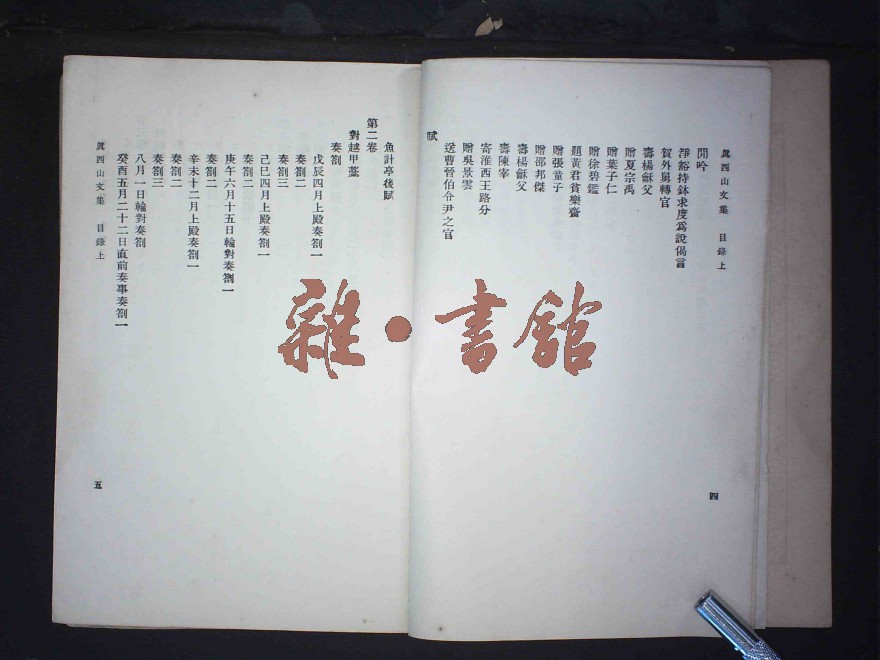 眞西山文集　目錄上
閒吟
淨裕持鉢求度爲說偈言
賀外舅轉官
壽楊龢父
贈夏宗禹
贈葉子仁
贈徐碧鑑
題黃君貧樂齋
贈張童子
贈邵邦傑
壽楊龢父
壽陳宰
寄淮西王路分
贈吳景雲
送曹晉伯令尹之官
賦
四
魚計亭後賦
第二卷
對越甲藁
奏劄
戊辰四月上殿奏劄一
奏劄二
奏劄三
己巳四月上殿奏劄一
奏劄二
庚午六月十五日輪對奏劄一
奏劄二
辛未十二月上殿奏劄一
奏劄二
奏劄三
八月一日輪對奏劄
癸酉五月二十二日直前奏事奏劄一
眞西山文集　目錄上
五
雜·書館